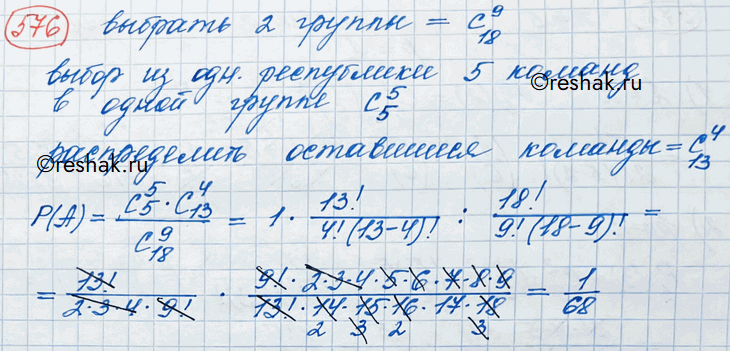 576 выбрать 2 группы = C₁₈⁹
выбор из одн. республики 5 команд
в одной группе C₅⁵
©reshak.ru
распределить оставшиеся команды = C₁₃⁴
©reshak.ru
P(A) = (C₅⁵ · C₁₃⁴) / C₁₈⁹ = 1 · 13! / (4! (13-4)!) : 18! / (9! (18-9)!) =
= 13! / (2·3·4·9!) · (9!·2·3·4·5·6·7·8·9) / (13!·14·15·16·17·18) = 1/68
2 3 2 3